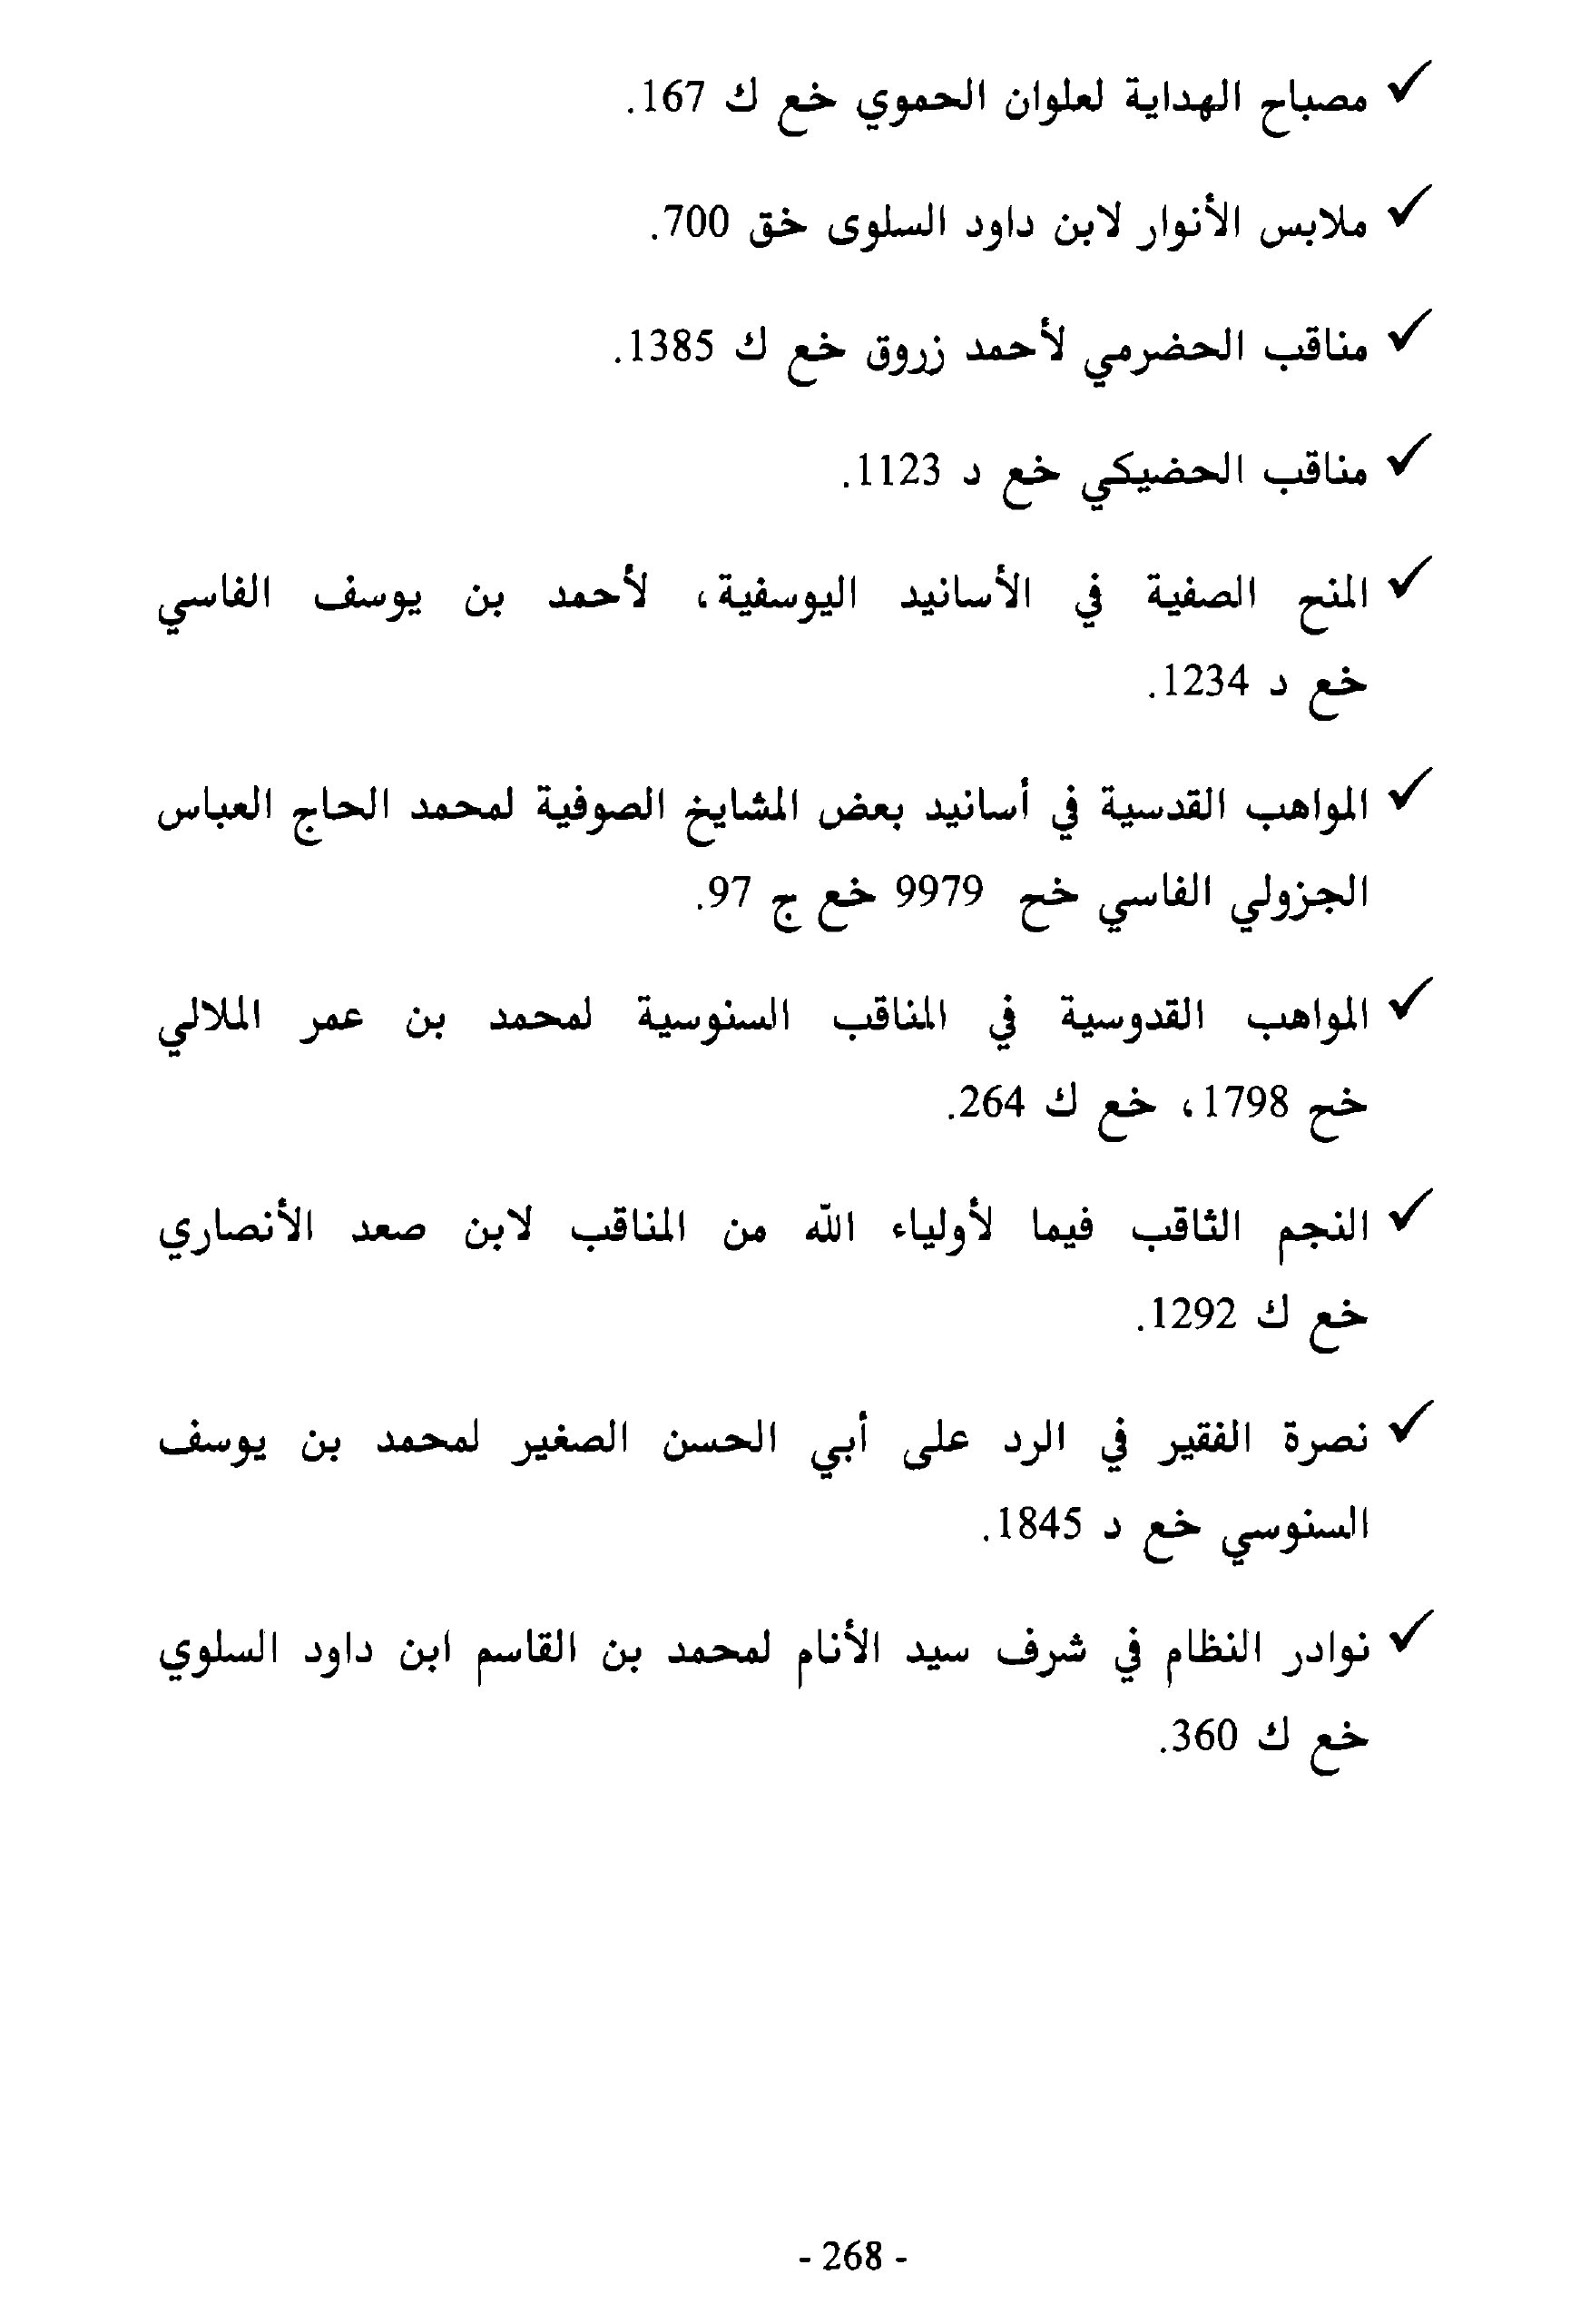 ✓ مصباح الهداية لعلوان الحموي خع ك 167.
✓ ملابس الأنوار لابن داود السلوى خق 700.
✓ مناقب الحضرمي لأحمد زروق خع ك 1385.
✓ مناقب الحضيكي خع د 1123.
✓ المنح الصفية في الأسانيد اليوسفية، لأحمد بن يوسف الفاسي
خع د 1234.
✓ المواهب القدسية في أسانيد بعض المشايخ الصوفية لمحمد الحاج العباس
الجزولي الفاسي خح 9979 خع ج 97.
✓ المواهب القدوسية في المناقب السنوسية لمحمد بن عمر الملالي
خح 1798، خع ك 264.
✓ النجم الثاقب فيما لأولياء الله من المناقب لابن صعد الأنصاري
خع ك 1292.
✓ نصرة الفقير في الرد على أبي الحسن الصغير لمحمد بن يوسف
السنوسي خع د 1845.
✓ نوادر النظام في شرف سيد الأنام لمحمد بن القاسم ابن داود السلوي
خع ك 360.
- 268 -